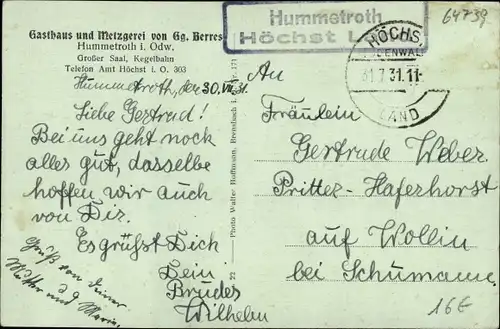 Gasthaus und Metzgerei von Gg. Berres
Hummetroth i. Odw.
Großer Saal, Kegelbahn
Telefon Amt Höchst i. O. 303
Hummetroth
Höchst L
64739
HÖCHS
ODENWAL
31.7.31.11-
LAND
Hummetroth, den 30. VII. 31.
Liebe Gertrud!
Bei uns geht noch
alles gut, dasselbe
hoffen wir auch
von Dir.
Es grüßst Dich
Dein
Bruder
Wilhelm
Gruß von Deiner
Mutter und Marie.
23 — Photo Walter Hoffmann, Brensbach i. 171
An
Fräulein
Gertrude Weber
Pritter-Haferhorst
auf Wollin
bei Schumann.
16€